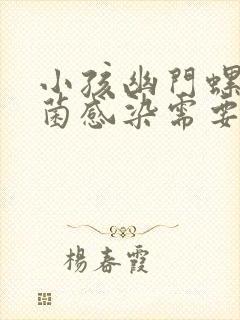 小孩幽門螺
菌感染需要
楊春霞